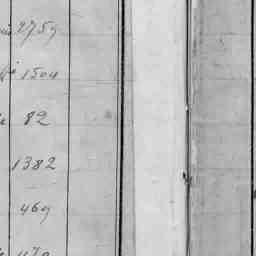 2759
1504
82
1382
469